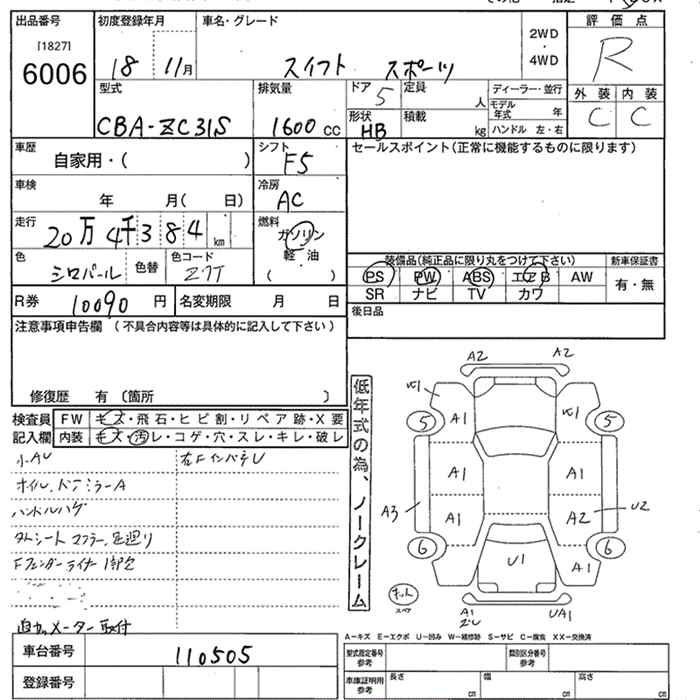 出品番号
[1827]
6006
初度登録年月
18 11月
車名・グレード
スイフト スポーツ
2WD
・
4WD
評価点
R
外装 内装
C C
型式
CBA-ZC31S
排気量
1600 CC
ドア 5
形状
HB
定員
人
積載
kg
ディーラー・並行
モデル年式 年
ハンドル 左・右
車歴
自家用・( )
シフト
F5
セールスポイント(正常に機能するものに限ります)
車検
年 月( 日)
冷房
AC
走行
20万4千384 km
燃料
ガソリン
軽油
( )
色
シロパール
色替
色コード
Z7T
装備品(純正品に限り丸をつけて下さい)
新車保証書
PS PW ABS エアB AW
有・無
SR ナビ TV カワ
R券 10090 円
名変期限 月 日
後日品
注意事項申告欄 (不具合内容等は具体的に記入して下さい)
修復歴 有 〔箇所 〕
検査員
記入欄
FW キズ・飛石・ヒビ割・リペア跡・X要
内装 キズ・汚レ・コゲ・穴・スレ・キレ・破レ
小AU
オイル、ドアミラーA
ハンドルハゲ
左FインパネU
追加メーター取付
低年式の為、ノークレーム
A2 A2
W1
5 A1 W1 5
A1 A1
A3 A1 A2 U2
6 U1 A1 6
A1
UA1
A-キズ E-エクボ U-凹み W-補修跡 S-サビ C-腐食 XX-交換済
車台番号
110505
登録番号
型式指定番号
参考
類別区分番号
参考
車庫証明用
参考
長さ
cm
幅
cm
高さ
cm